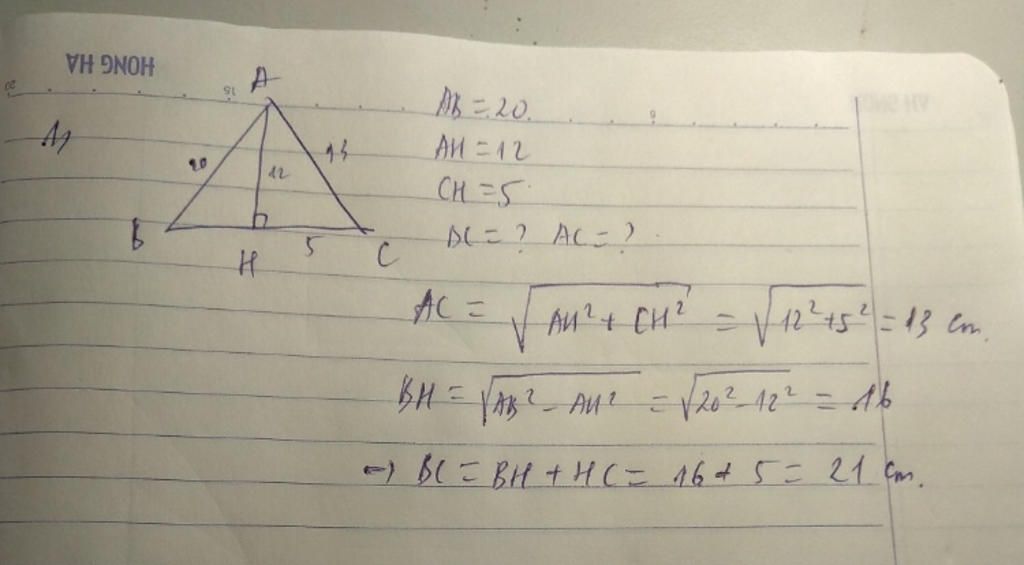 HONG HA
20
15
9
1)
A
20
12
13
B
H
5
C
AB = 20
AH = 12
CH = 5
BC = ? AC = ?
AC = √AH² + CH² = √12² + 5² = 13 cm.
BH = √AB² - AH² = √20² - 12² = 16
=> BC = BH + HC = 16 + 5 = 21 cm.